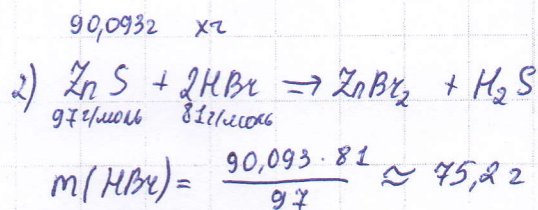 90,093г хг
2) ZnS + 2HBr ⇒ ZnBr₂ + H₂S
97г/моль 81г/моль
m(HBr) = 90,093 · 81 / 97 ≈ 75,2 г